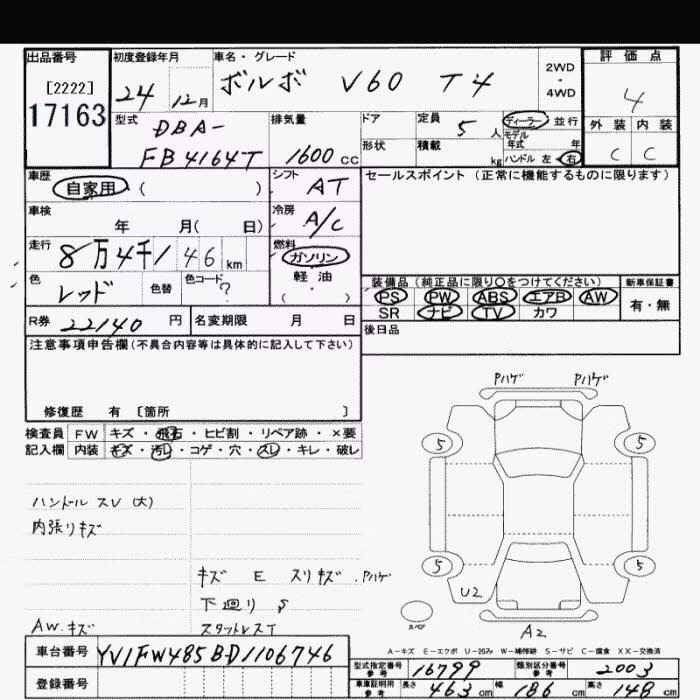 出品番号
[2222]
17163
初度登録年月
24 12月
車名・グレード
ボルボ V60 T4
2WD
・
4WD
評価点
4
外装 内装
C C
型式
DBA-
FB4164T
排気量
1600 cc
ドア
形状
定員
5 人
積載
kg
ディーラー 並行
モデル
年式 年
ハンドル 左・右
車歴
自家用 ( )
シフト
AT
セールスポイント (正常に機能するものに限ります)
車検
年 月( 日)
冷房
A/C
走行
8万4千146 km
燃料
ガソリン
軽油
( )
色
レッド
色替
色コード
?
装備品 (純正品に限り○をつけてください)
PS PW ABS エアB AW
SR ナビ TV カワ
新車保証書
有・無
R券 22140 円
名変期限 月 日
後日品
注意事項申告欄(不具合内容等は具体的に記入して下さい)
修復歴 有 [箇所 ]
検査員 FW キズ・飛石・ヒビ割・リペア跡・×要
記入欄 内装 キズ・汚レ・コゲ・穴・スレ・キレ・破レ
Pハゲ Pハゲ
5 5
5 5
U2
A2
スペア
ハンドル スレ (大)
内張りキズ
キズ E スリキズ . Pハゲ
下廻り S
AW. キズ
スタットレスT
A-キズ E-エクボ U-凹み W-補修跡 S-サビ C-腐食 XX-交換済
車台番号 YV1FW485BD1106746
登録番号
型式指定番号
参考
16799
類別区分番号
参考
2003
車庫証明用
参考
長さ 463 cm
幅 186 cm
高さ 148 cm